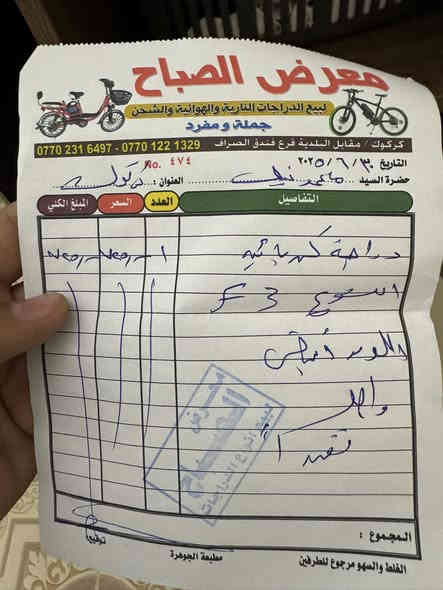 معرض الصباح
لبيع الدراجات النارية والهوائية والشحن
جملة ومفرد
كركوك / مقابل البلدية فرع فندق الصراف
0770 122 1329 - 0770 231 6497
التاريخ ٣٠ / ٦ / ٢٠٢٥
No. ٤٧٤
حضرة السيد
العنوان : كركوك
التفاصيل العدد السعر المبلغ الكلي
دراجة كهربائية ١
النوع F3
اللون أبيض
واصل
نقداً
معرض
الصباح
لبيع انواع الدراجات
المجموع :
توقيع
الغلط والسهو مرجوع للطرفين
مطبعة الجوهرة